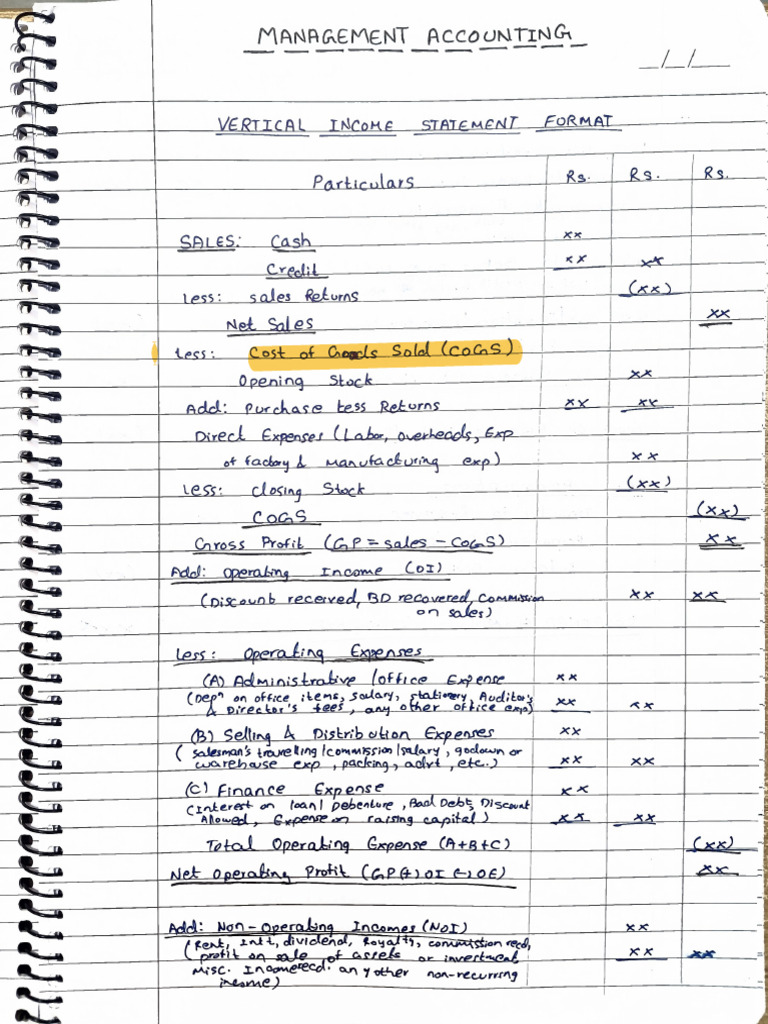 MANAGEMENT ACCOUNTING
_/_/__
VERTICAL INCOME STATEMENT FORMAT
Particulars Rs. Rs. Rs.
SALES: Cash xx
Credit xx xx
Less: Sales Returns (xx)
Net Sales xx
Less: Cost of Goods Sold (COGS)
Opening Stock xx
Add: Purchase less Returns xx xx
Direct Expenses (Labor, overheads, Exp
of factory & Manufacturing exp) xx
Less: Closing Stock (xx)
COGS (xx)
Gross Profit (GP = sales - COGS) xx
Add: Operating Income (OI)
(Discount received, BD recovered, Commission xx xx
on sales)
Less: Operating Expenses
(A) Administrative /office Expense xx
(Depn on office items, Salary, stationery, Auditor's
& Director's fees, any other office exp) xx xx
(B) Selling & Distribution Expenses xx
(salesman's travelling/commission/salary, godown or
warehouse exp, packing, advt, etc.) xx xx
(C) Finance Expense xx
(Interest on loan/ Debenture, Bad Debt, Discount
Allowed, Expense on raising capital) xx xx
Total Operating Expense (A+B+C) (xx)
Net Operating Profit (GP(+) OI (-) OE) xx
Add: Non-Operating Incomes (NOI) xx
(Rent, Intt, dividend, Royalty, commission recd,
profit on sale of assets or investment xx xx
Misc. Income recd. any other non-recurring
income)